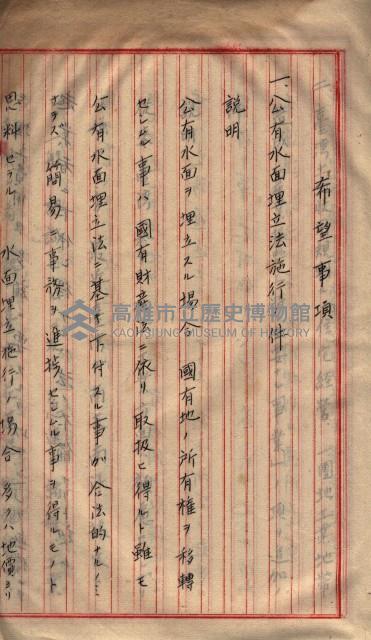 希望事項
一、公有水面埋立法施行ノ件
説明
公有水面ヲ埋立スル場合 國有地ノ所有權ヲ移轉
セシムル事ハ國有財産法ニ依リ取扱ヒ得ルト雖モ
公有水面埋立法ニ基キ下付スル事加 合法的ナルノミ
ナラズ簡易ニ事務ヲ進捗セシムル事ヲ得ルモノト
思料セラル 水面埋立施行ノ場合 多クハ地價ヨリ
高雄市立歷史博物館
KAOHSIUNG MUSEUM OF HISTORY